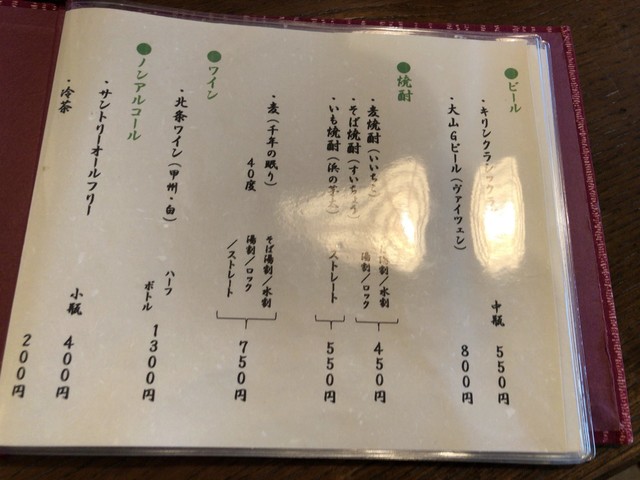 ●ビール
・キリンクラシックラガー 中瓶 550円
・大山Gビール(ヴァイツェン) 800円
●焼酎
・麦焼酎(いいちこ)
・そば焼酎
湯割/水割
湯割/ロック 450円
・いも焼酎 ストレート 550円
・麦(千年の眠り)
40度
そば湯割/水割
湯割/ロック
/ストレート 750円
●ワイン
・北条ワイン(甲州・白) ハーフ
ボトル 1300円
●ノンアルコール
・サントリーオールフリー 小瓶 400円
・冷茶 200円